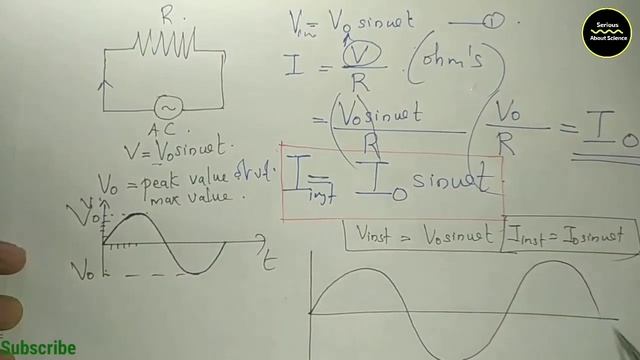 R.
A.C.
V = V₀ sinωt.
V₀ = peak value of vlt.
max value.
V₀
V₀
t
Vin = V₀ sinωt — ①.
I = V/R. (ohm's)
= V₀ sinωt / R
V₀/R = I₀
Iinst = I₀ sinωt
Vinst = V₀ sinωt
Iinst = I₀ sinωt
Serious
About Science
Subscribe